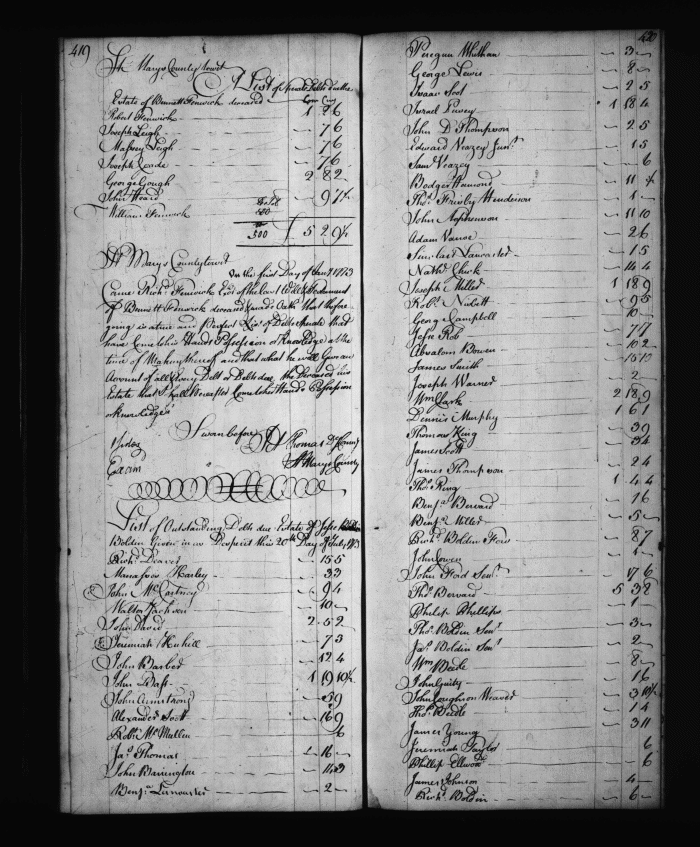 419
St Marys County Court
A List of Sperate Debts due the
Estate of Bennett Fenwick deceased
Robert Fenwick 1 2 6
Joseph Leigh 7 6
Massey Leigh 7 6
Joseph Leade 7 6
George Gough 2 8 2
John Heard 9 7½
William Fenwick
500 £ 5 2 9½
St Marys County Court
On the first Day of Jany 1773
Came Richd Fenwick Exor of the Last Will & Testament
of Bennett Fenwick deceased & made Oath that the fore
going is a true and Perfect List of Debts Sperate that
have Come to his Hands Possession or Knowledge at the
time of Making thereof and that what he will Give an
Account of all Every Debt or Debts due the deceased his
Estate that Shall hereafter Come to his Hands Possession
or knowledge
Sworn before
St Thomas D. Comry
St Marys County
Exam
List of Outstanding Debts due Estate of
Boldin Given in as Desperit this 20th Day of July 1773
Richd Deaver 15 5
Harley 3 3
John McCartney 9 4
Walter Jackson 10
John David 2 5 2
Jeremiah Hukill 7 3
John Barber 12 4
John 1 19 10½
John Armstrong 5 9
Alexander Scott 16 9
Robt McMullen 6
Jas Thomas 16
John Barrington
Benja Lancaster 2
420
Peregun Whithan 3
George Lewis 8
Isaac Foot 2 5
Israel Pusey 1 18 4
John D Thompson 2 5
Edward Veazey Junr 1 5
Saml Veazey 6
11
Thos Frisby Henderson 1
John Stephenson 11 10
Adam Vance 2 6
Sinclair Lancaster 1 5
Nathl Chick 14 4
Joseph Miller 1 18 9
Robt Nisbett 9 5
George Campbell 10
Jesse Rob 7 7
Absalom Bowen 10 2
James Smith
Joseph Warner 2
Wm Clark 2 18 9
Dennis Murphy 1 6 1
Thomas King 3 9
James Scott 3 4
James Thompson 2 4
Thos Ring 1 4 4
Benja Bervard 1 6
Benja Miller 5
Richd Boldin Ford 8 7
John Cowen
John Ford Senr 17 6
Thos Bervard 5 3 8
Philip Phillips 1
Thos Boldin Senr 3
Jas Boldin Senr 2
Wm Beedle 8
John Guity 1 6
John Loughron Weaver 3 10½
Thos Beedle 1 4
James Young 3 11
Jeremiah Taylor 6
Phillip Ellwood 6
James Johnson 4
Richd Boldin 6